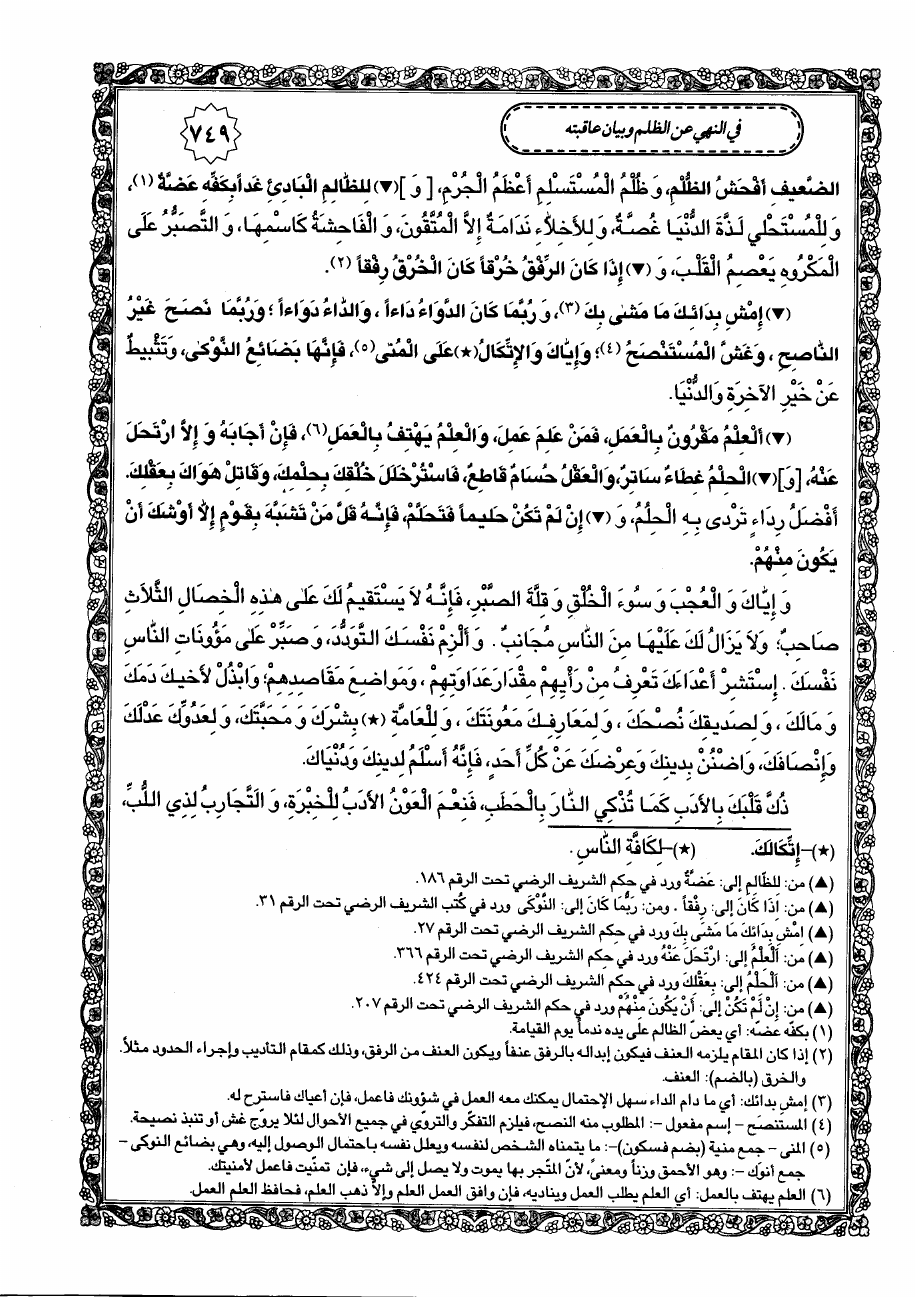 في النهي عن الظلم وبيان عاقبته
٧٤٩
الضَّعِيفِ أَفْحَشُ الظُّلْمِ، وَ ظُلْمُ الْمُسْتَسْلِمِ أَعْظَمُ الْجُرْمِ، [ وَ ](▼) لِلظَّالِمِ الْبَادِئِ غَداً بِكَفِّهِ عَضَّةٌ (١)،
وَ لِلْمُسْتَحْلِي لَذَّةَ الدُّنْيَا غُصَّةٌ، وَ لِلأَخِلاَّءِ نَدَامَةٌ إِلاَّ الْمُتَّقُونَ، وَ الْفَاحِشَةُ كَاسْمِهَا، وَ التَّصَبُّرُ عَلَى
الْمَكْرُوهِ يَعْصِمُ الْقَلْبَ، وَ (▼) إِذَا كَانَ الرِّفْقُ خُرْقاً كَانَ الْخُرْقُ رِفْقاً (٢).
(▼) إِمْشِ بِدَائِكَ مَا مَشَى بِكَ (٣)، وَ رُبَّمَا كَانَ الدَّوَاءُ دَاءاً ، وَالدَّاءُ دَوَاءاً ؛ وَرُبَّمَا نَصَحَ غَيْرُ
النَّاصِحِ ، وَغَشَّ الْمُسْتَنْصَحُ (٤)؛ وَإِيَّاكَ وَالإِتِّكَالُ(★) عَلَى الْمُنَى(٥)، فَإِنَّهَا بَضَائِعُ النَّوْكَى، وَتَثْبِيطٌ
عَنْ خَيْرِ الآخِرَةِ وَالدُّنْيَا.
(▼) أَلْعِلْمُ مَقْرُونٌ بِالْعَمَلِ، فَمَنْ عَلِمَ عَمِلَ، وَالْعِلْمُ يَهْتِفُ بِالْعَمَلِ(٦)، فَإِنْ أَجَابَهُ وَ إِلاَّ ارْتَحَلَ
عَنْهُ، [وَ](▼) الْحِلْمُ غِطَاءٌ سَاتِرٌ، وَالْعَقْلُ حُسَامٌ قَاطِعٌ، فَاسْتُرْ خَلَلَ خُلْقِكَ بِحِلْمِكَ، وَقَاتِلْ هَوَاكَ بِعَقْلِكَ.
أَفْضَلُ رِدَاءٍ تَرْدى بِهِ الْحِلْمُ، وَ (▼) إِنْ لَمْ تَكُنْ حَلِيماً فَتَحَلَّمْ، فَإِنَّهُ قَلَّ مَنْ تَشَبَّهَ بِقَوْمٍ إِلاَّ أَوْشَكَ أَنْ
يَكُونَ مِنْهُمْ.
وَ إِيَّاكَ وَ الْعُجْبَ وَ سُوءَ الْخُلْقِ وَ قِلَّةَ الصَّبْرِ، فَإِنَّهُ لاَ يَسْتَقِيمُ لَكَ عَلَى هٰذِهِ الْخِصَالِ الثَّلاَثِ
صَاحِبٌ؛ وَلاَ يَزَالُ لَكَ عَلَيْهَا مِنَ النَّاسِ مُجَانِبٌ . وَ أَلْزِمْ نَفْسَكَ التَّوَدُّدَ، وَ صَبِّرْ عَلَى مَؤُونَاتِ النَّاسِ
نَفْسَكَ . إِسْتَشِرْ أَعْدَاءَكَ تَعْرِفُ مِنْ رَأْيِهِمْ مِقْدَارَ عَدَاوَتِهِمْ ، وَمَوَاضِعَ مَقَاصِدِهِمْ؛ وَابْذُلْ لأَخِيكَ دَمَكَ
وَ مَالَكَ ، وَ لِصَدِيقِكَ نُصْحَكَ ، وَ لِمَعَارِفِكَ مَعُونَتَكَ ، وَ لِلْعَامَّةِ (★) بِشْرَكَ وَ مَحَبَّتَكَ، وَ لِعَدُوِّكَ عَدْلَكَ
وَإِنْصَافَكَ، وَاضْنُنْ بِدِينِكَ وَعِرْضِكَ عَنْ كُلِّ أَحَدٍ، فَإِنَّهُ أَسْلَمُ لِدِينِكَ وَدُنْيَاكَ.
ذَكِّ قَلْبَكَ بِالأَدَبِ كَمَا تُذَكِّي النَّارَ بِالْحَطَبِ، فَنِعْمَ الْعَوْنُ الأَدَبُ لِلْخِبْرَةِ، وَ التَّجَارِبُ لِذِي اللُّبِّ،
(★)-إِتِّكَالَكَ. (★)-لِكَافَّةِ النَّاسِ .
(▲) من: لِلظَّالِمِ إلى: عَضَّةٌ ورد في حكم الشريف الرضي تحت الرقم ١٨٦.
(▲) من: إذَا كَانَ إلى: رِفْقاً . ومن: رُبَّمَا كَانَ إلى: النَّوْكَى ورد في كُتب الشريف الرضي تحت الرقم ٣١.
(▲) إمْشِ بِدَائِكَ مَا مَشَى بِكَ ورد في حكم الشريف الرضي تحت الرقم ٢٧.
(▲) من: أَلْعِلْمُ إلى: ارْتَحَلَ عَنْهُ ورد في حكم الشريف الرضي تحت الرقم ٣٦٦.
(▲) من: أَلْحِلْمُ إلى: بِعَقْلِكَ ورد في حكم الشريف الرضي تحت الرقم ٤٢٤.
(▲) من: إِنْ لَمْ تَكُنْ إلى: أَنْ يَكُونَ مِنْهُمْ ورد في حكم الشريف الرضي تحت الرقم ٢٠٧.
(١) بكفّه عضّه: أي يعضّ الظالم على يده ندماً يوم القيامة.
(٢) إذا كان المقام يلزمه العنف فيكون إبداله بالرفق عنفاً ويكون العنف من الرفق، وذلك كمقام التأديب وإجراء الحدود مثلاً.
والخرق (بالضم): العنف.
(٣) إمش بدائك: أي ما دام الداء سهل الإحتمال يمكنك معه العمل في شؤونك فاعمل، فإن أعياك فاسترح له.
(٤) المستنصَح – إسم مفعول –: المطلوب منه النصح، فيلزم التفكّر والتروّي في جميع الأحوال لئلا يروّج غش أو تنبذ نصيحة.
(٥) المنى – جمع منية (بضم فسكون)–: ما يتمناه الشخص لنفسه ويعلل نفسه باحتمال الوصول إليه، وهي بضائع النوكى –
جمع أنوك –: وهو الأحمق وزناً ومعنىً، لأنّ المتّجر بها يموت ولا يصل إلى شيء، فإن تمنّيت فاعمل لأمنيتك.
(٦) العلم يهتف بالعمل: أي العلم يطلب العمل ويناديه، فإن وافق العمل العلم وإلاّ ذهب العلم، فحافظ العلم العمل.